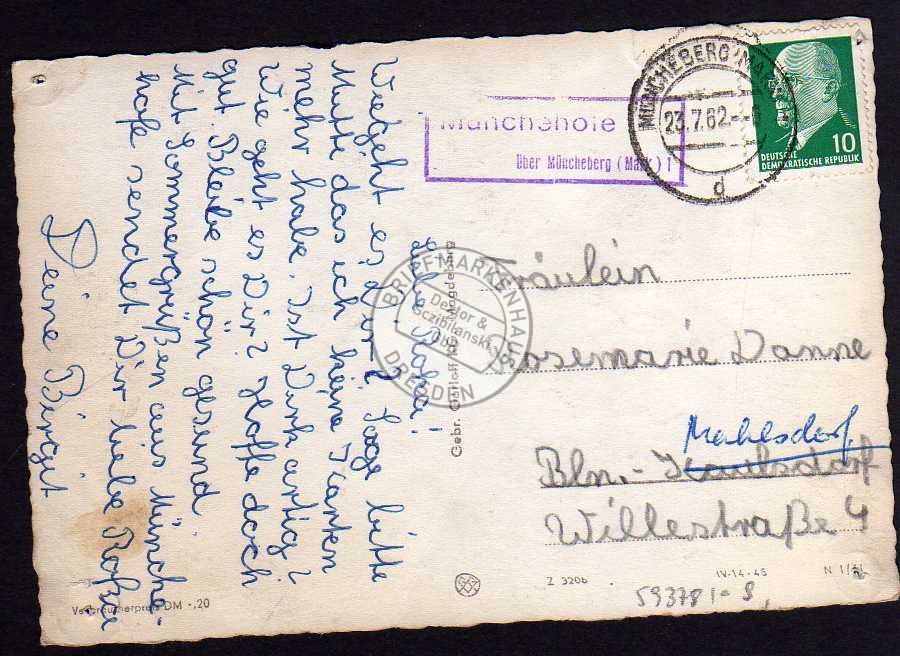 Liebe Roßa!
Wie geht es Dir? Sage bitte
Mutti das ich keine Karten
mehr habe. Ist Dirk artig?
Wie geht es Dir? Hoffe doch
gut. Bleibe schön gesund.
Mit Sommergrüßen aus Münche-
hofe sendet Dir liebe Roßa
Deine Birgit
Münchehofe
über Müncheberg (Mark) 1
MÜNCHEBERG (MARK)
23.7.62.
d
10
DEUTSCHE
DEMOKRATISCHE REPUBLIK
Fräulein
Rosemarie Danne
Mahlsdorf
Bln.-Kaulsdorf
Willestraße 4
Gebr. Garloff KG, Magdeburg
BRIEFMARKENHAUS
Dektor &
Sczibilanski
GbR
DRESDEN
Verbraucherpreis DM -,20
Z 3206
IV-14-45
N 1/61